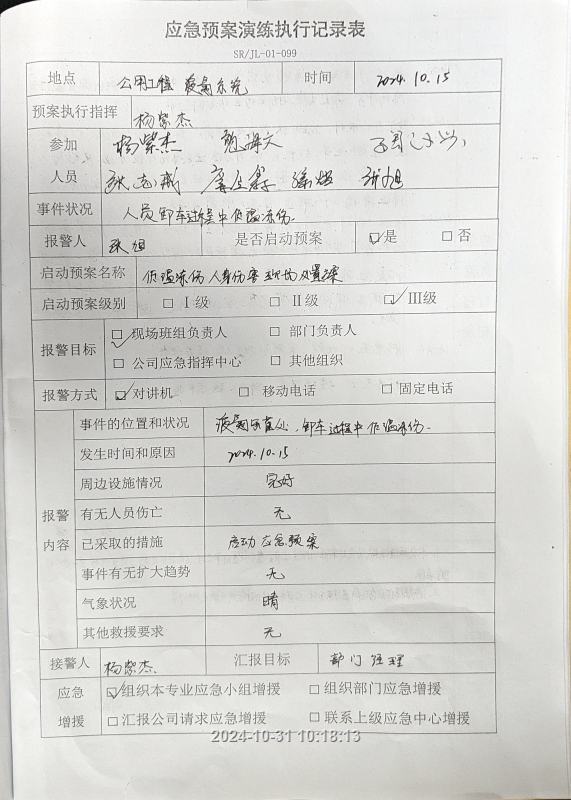 应急预案演练执行记录表
SR/JL-01-099
地点 公用工程 液氮系统 时间 2024.10.15
预案执行指挥 杨紫杰
参加 杨紫杰
人员 张志成
事件状况 人员卸车过程中低温冻伤.
报警人 张旭 是否启动预案 ☑是 □否
启动预案名称 低温冻伤人身伤害现场处置案
启动预案级别 □Ⅰ级 □Ⅱ级 ☑Ⅲ级
报警目标 ☑现场班组负责人 □部门负责人
□公司应急指挥中心 □其他组织
报警方式 ☑对讲机 □移动电话 □固定电话
报警内容
事件的位置和状况 卸车过程中低温冻伤.
发生时间和原因 2024.10.15
周边设施情况 完好
有无人员伤亡 无
已采取的措施 启动应急预案
事件有无扩大趋势 无
气象状况 晴
其他救援要求 无
接警人 杨紫杰. 汇报目标 部门经理
应急 ☑组织本专业应急小组增援 □组织部门应急增援
增援 □汇报公司请求应急增援 □联系上级应急中心增援
2024-10-31 10:18:13